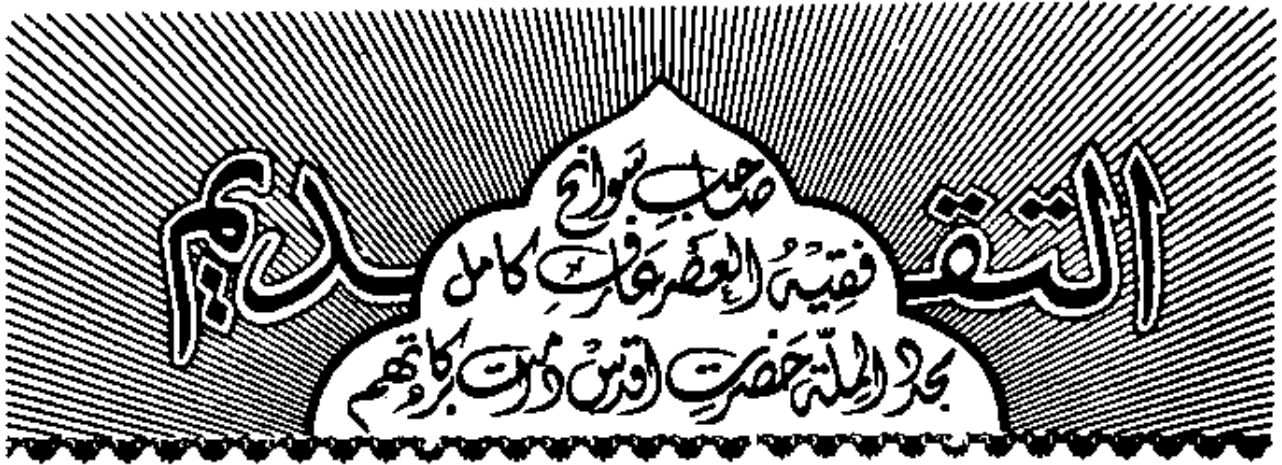 التقديم
صاحبِ سَوانح
فقیہُ العصر عارفِ کامل
مجدد الملّۃ حضرتِ اقدس دامت برکاتہم